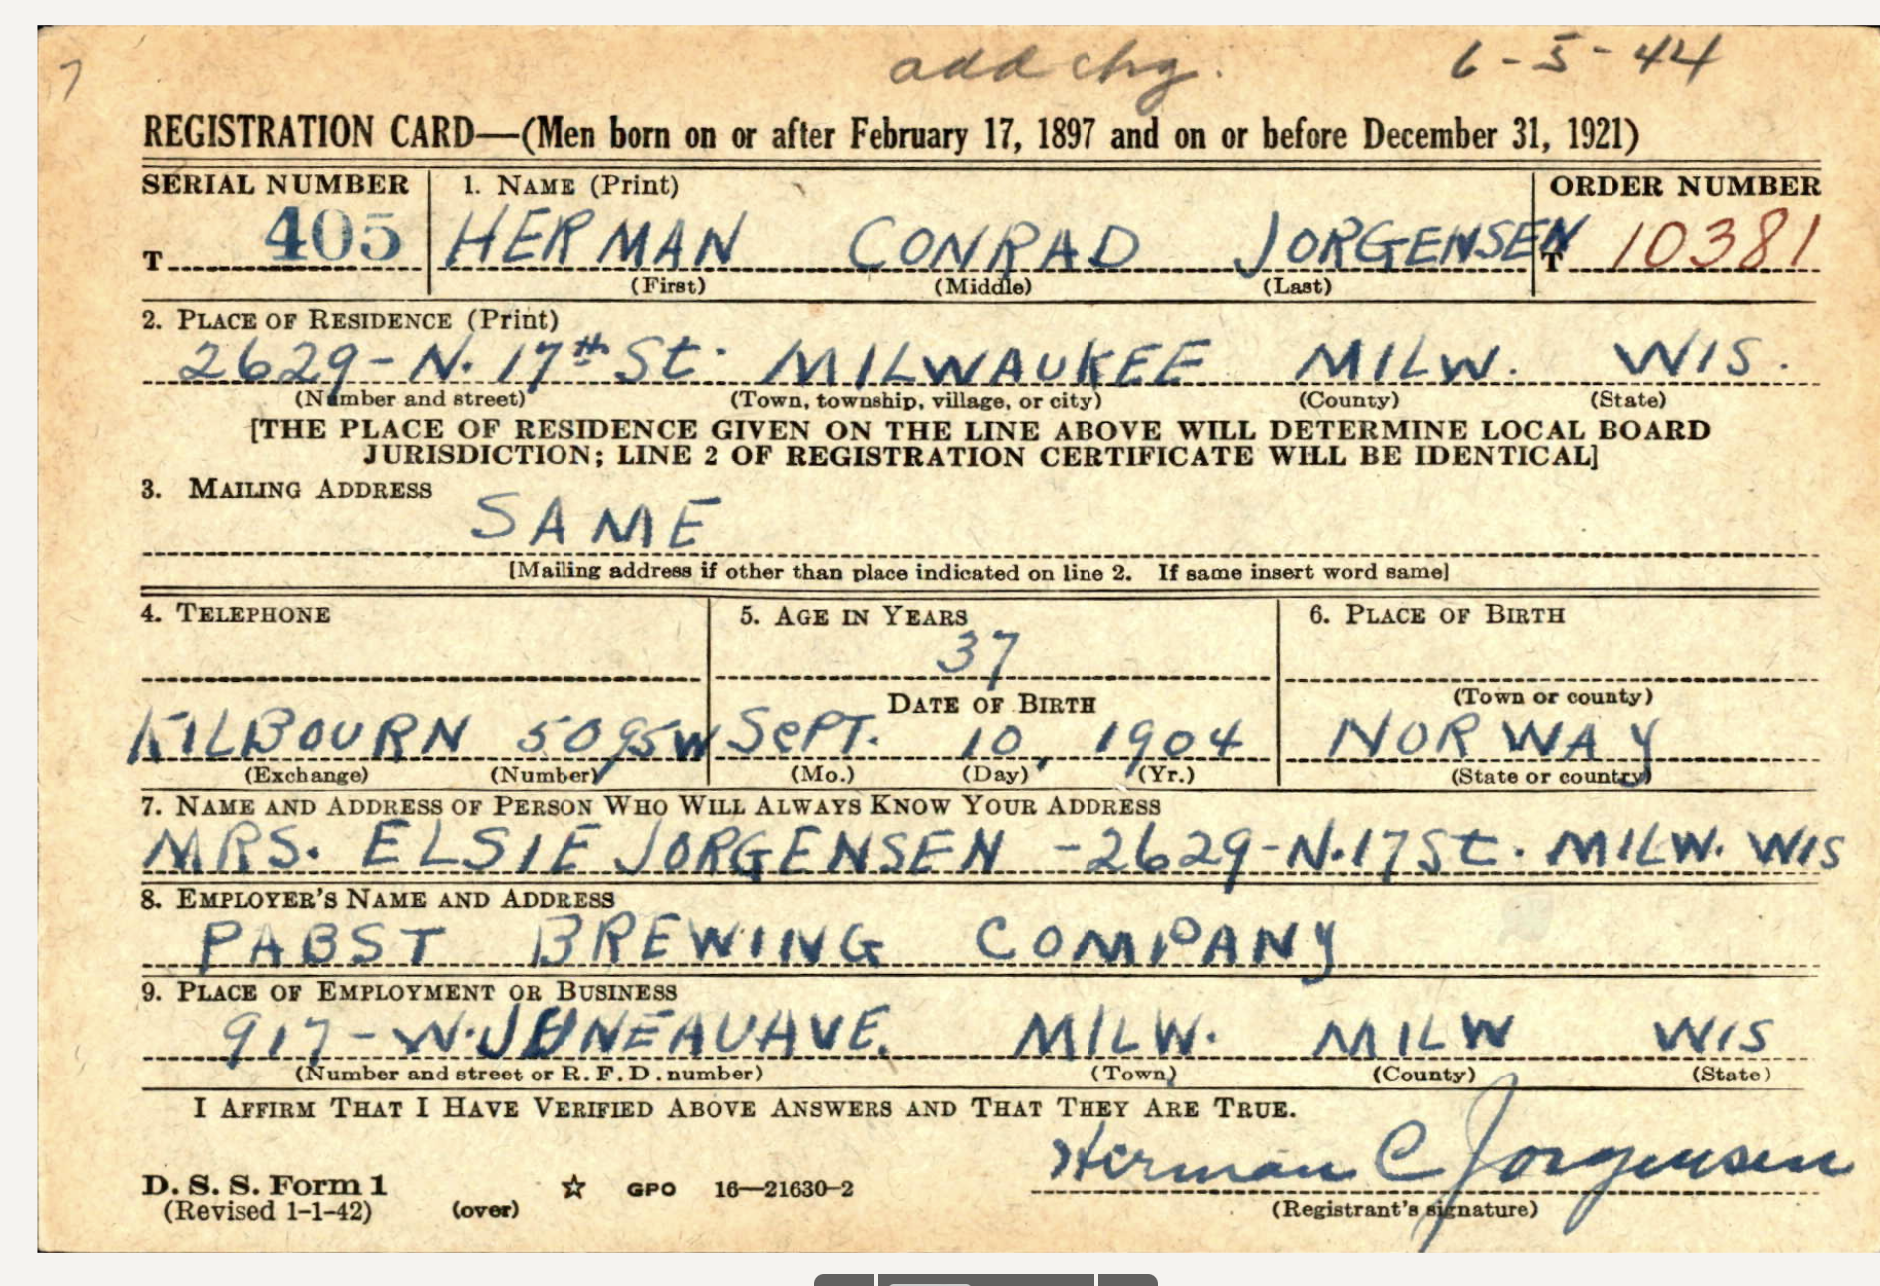 7 add chg. 6-5-44
REGISTRATION CARD—(Men born on or after February 17, 1897 and on or before December 31, 1921)
SERIAL NUMBER 1. NAME (Print) ORDER NUMBER
T 405 HERMAN CONRAD JORGENSEN T 10381
(First) (Middle) (Last)
2. PLACE OF RESIDENCE (Print)
2629-N. 17th St. MILWAUKEE MILW. WIS.
(Number and street) (Town, township, village, or city) (County) (State)
[THE PLACE OF RESIDENCE GIVEN ON THE LINE ABOVE WILL DETERMINE LOCAL BOARD
JURISDICTION; LINE 2 OF REGISTRATION CERTIFICATE WILL BE IDENTICAL]
3. MAILING ADDRESS
SAME
[Mailing address if other than place indicated on line 2. If same insert word same]
4. TELEPHONE 5. AGE IN YEARS 6. PLACE OF BIRTH
37
DATE OF BIRTH (Town or county)
KILBOURN 5095W SEPT. 10, 1904 NORWAY
(Exchange) (Number) (Mo.) (Day) (Yr.) (State or country)
7. NAME AND ADDRESS OF PERSON WHO WILL ALWAYS KNOW YOUR ADDRESS
MRS. ELSIE JORGENSEN -2629-N.17 St. MILW. WIS
8. EMPLOYER'S NAME AND ADDRESS
PABST BREWING COMPANY
9. PLACE OF EMPLOYMENT OR BUSINESS
917-W.JUNEAU AVE. MILW. MILW WIS
(Number and street or R. F. D. number) (Town) (County) (State)
I AFFIRM THAT I HAVE VERIFIED ABOVE ANSWERS AND THAT THEY ARE TRUE.
Herman C Jorgensen
D. S. S. Form 1 ☆ GPO 16—21630-2
(Revised 1-1-42) (over) (Registrant's signature)